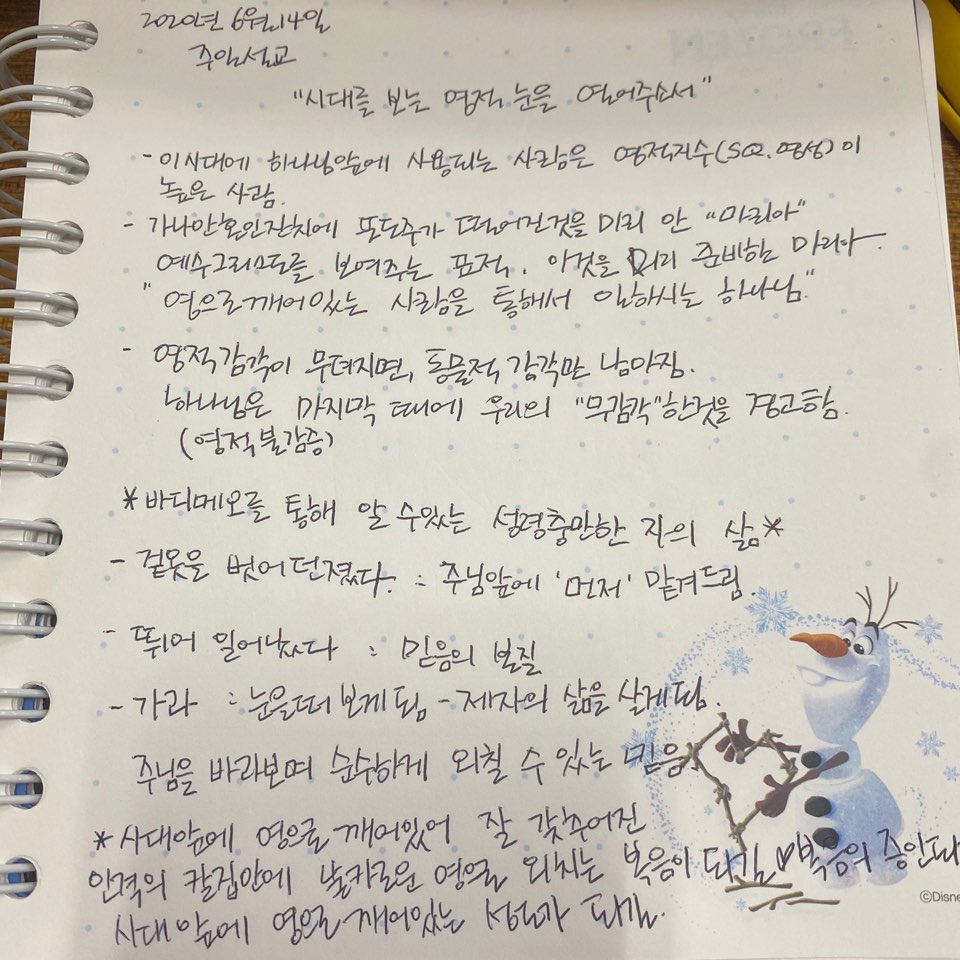 2020년 6월 14일
주일설교
"시대를 보는 영적 눈을 열어주소서"
- 이시대에 하나님앞에 사용되는 사람은 영적지수(SQ.영성)이
높은 사람.
- 가나안혼인잔치에 포도주가 떨어진것을 미리 안 "마리아"
예수그리스도를 보여주는 표적. 이것을 미리 준비한 마리아.
"영으로깨어있는 사람을 통해서 일하시는 하나님."
- 영적감각이 무뎌지면, 동물적 감각만 남아짐.
하나님은 마지막 때에 우리의 "무감각"한것을 경고함.
(영적불감증)
*바디메오를 통해 알 수있는 성령충만한 자의 삶*
- 겉옷을 벗어던졌다. : 주님앞에 '먼저' 맡겨드림.
- 뛰어 일어났다 : 믿음의 본질
- 가라 : 눈을떠 보게됨 - 제자의 삶을 살게됨.
주님을 바라보며 순수하게 외칠 수 있는 믿음.
*시대앞에 영으로깨어있어 잘 갖추어진
인격의 칼집안에 날카로운 영으로 외치는 복음이 되길♡복음의 증인되
시대앞에 영으로깨어있는 성도가 되길.
©Disne